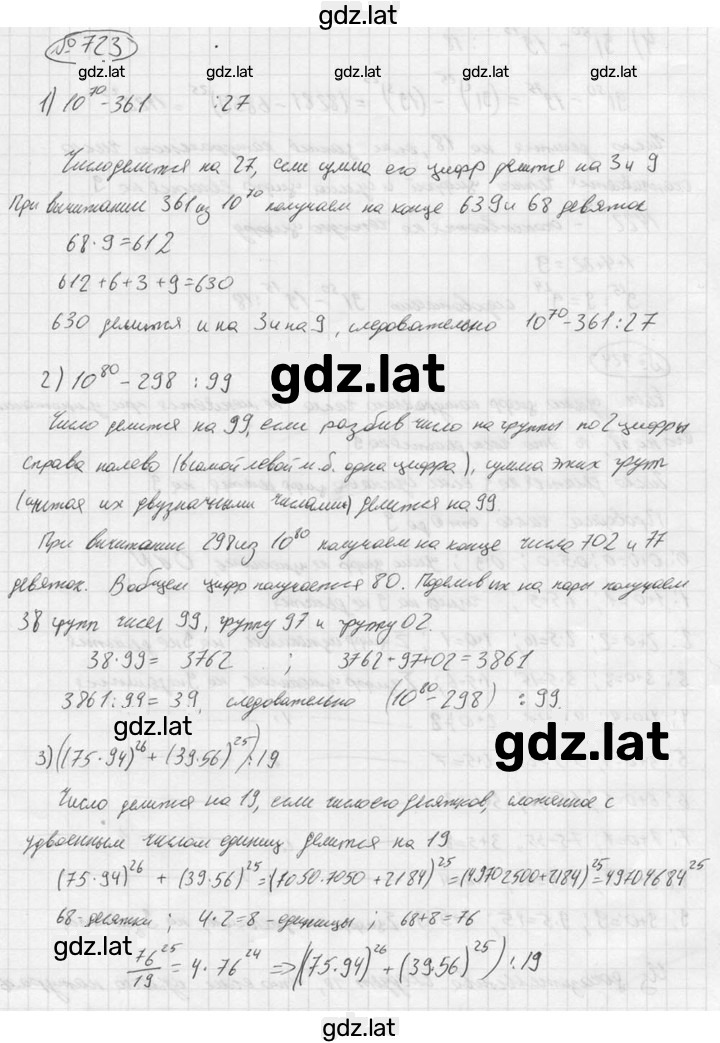 gdz.lat
№723
gdz.lat gdz.lat gdz.lat
1) 10⁷⁰-361 ⋮27
Число делится на 27, если сумма его цифр делится на 3 и 9
При вычитании 361 из 10⁷⁰ получаем на конце 639 и 68 девяток
68·9=612
612+6+3+9=630
630 делится и на 3 и на 9, следовательно 10⁷⁰-361⋮27
2) 10⁸⁰-298 ⋮99
gdz.lat
Число делится на 99, если разбив число на группы по 2 цифры
справа налево (в самой левой м.б. одна цифра), сумма этих групп
(считая их двузначными числами) делится на 99.
При вычитании 298 из 10⁸⁰ получаем на конце числа 702 и 77
девяток. В общем цифр получается 80. Поделив их на пары получаем
38 групп чисел 99, группу 97 и группу 02.
38·99= 3762 ; 3762+97+02=3861
3861:99=39, следовательно (10⁸⁰-298) ⋮99.
gdz.lat gdz.lat
3) ((75·94)²⁶+(39·56)²⁵)⋮19
Число делится на 19, если число его десятков, сложенное с
удвоенным числом единиц делится на 19
(75·94)²⁶ + (39·56)²⁵=(7050·7050+2184)²⁵=(49702500+2184)²⁵=49704684²⁵
68-десятки; 4·2=8-единицы; 68+8=76
gdz.lat
76²⁵/19=4·76²⁴ => ((75·94)²⁶+(39·56)²⁵)⋮19
gdz.lat